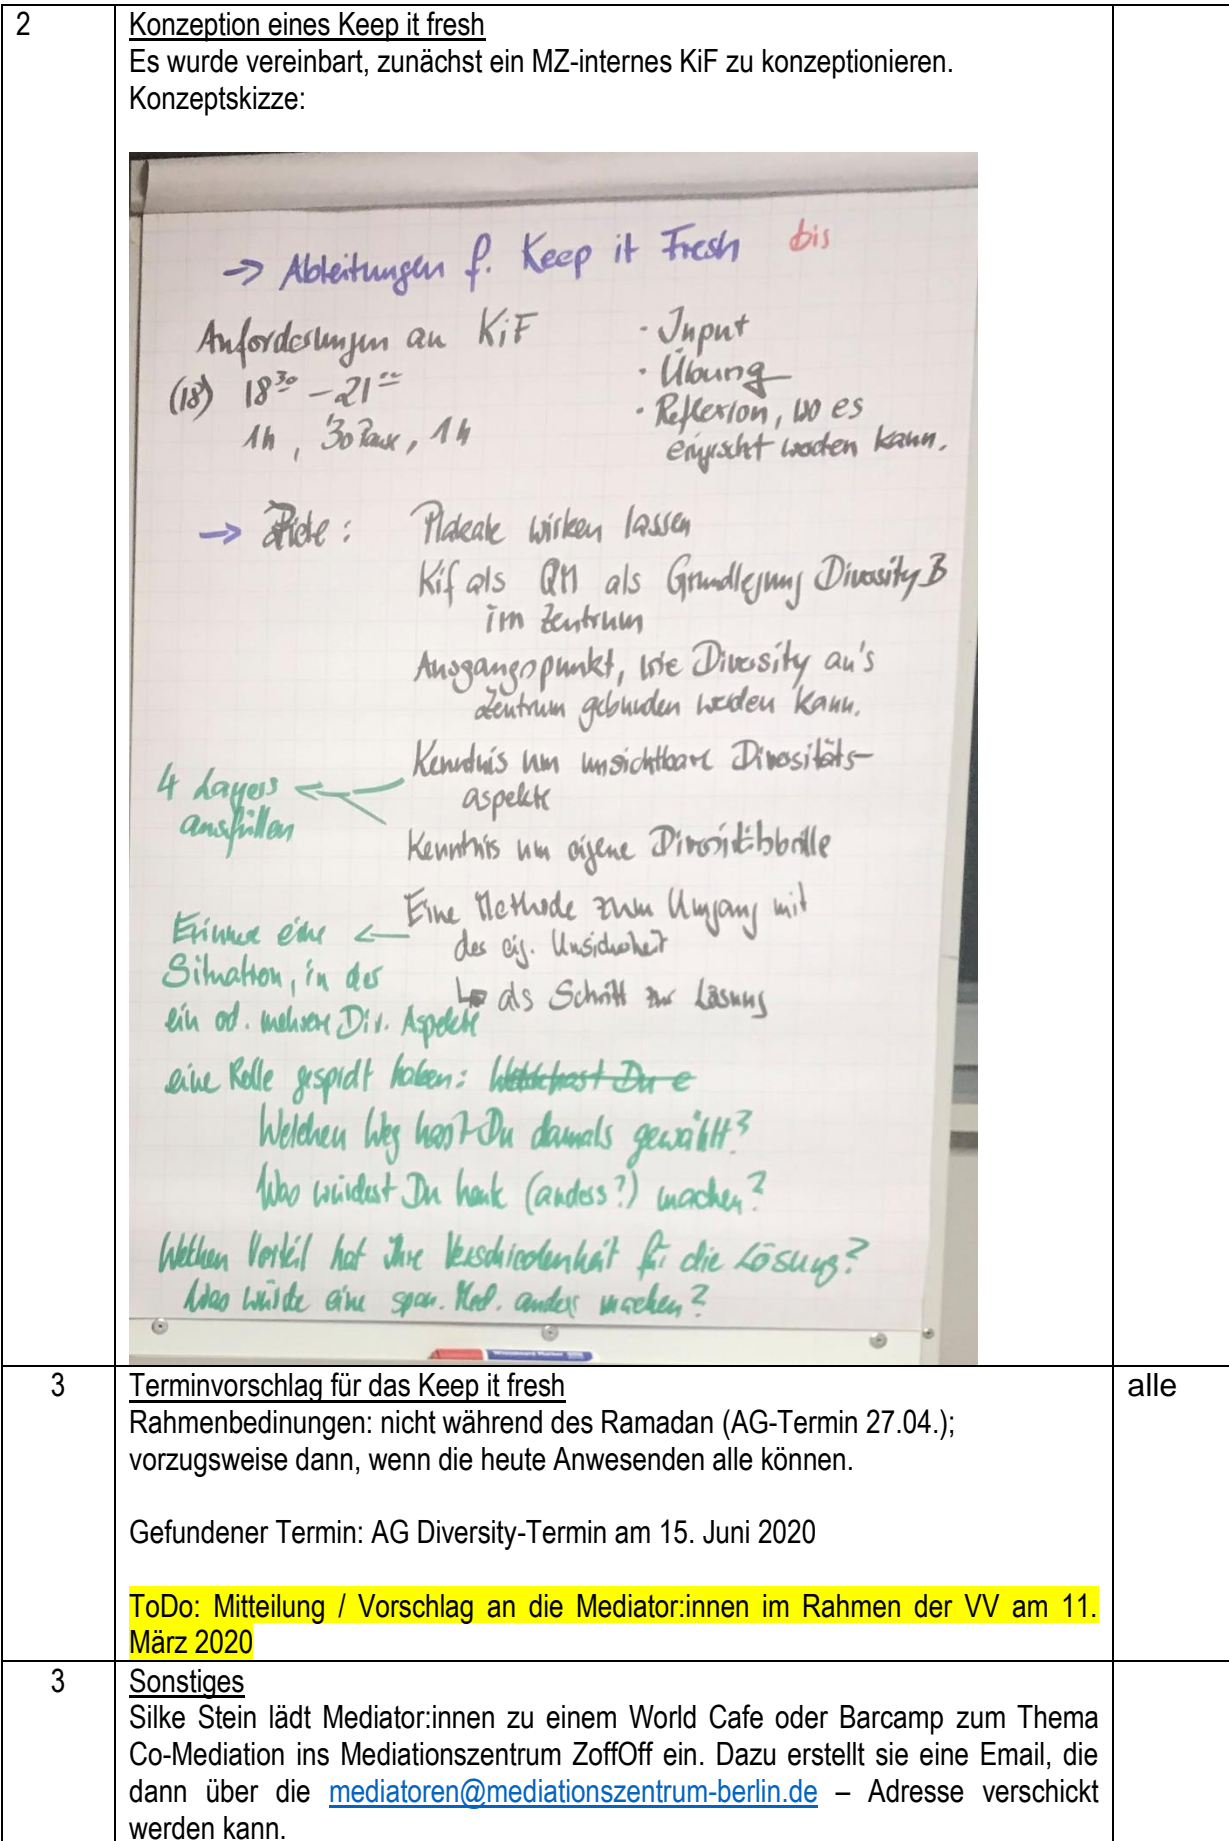 2
Konzeption eines Keep it fresh
Es wurde vereinbart, zunächst ein MZ-internes KiF zu konzeptionieren.
Konzeptskizze:
→ Ableitungen f. Keep it Fresh bis
Anforderungen an KiF
(18) 18³⁰ – 21⁰⁰
1h, 30 Pause, 1h
· Input
· Übung
· Reflexion, wo es
werden kann.
→ Ziele: Plakate wirken lassen
Kif als QM als Grundlegung Diversity B
im Zentrum
Ausgangspunkt, wie Diversity an's
Zentrum gebunden werden kann.
Kenntnis um unsichtbare Diversitäts-
aspekte
4 Layers
ausfüllen
Kenntnis um eigene Diversitätsbrille
Eine Methode zum Umgang mit
der eig. Unsicherheit
↳ als Schritt zur Lösung
Erinnere eine
Situation, in der
ein od. mehrere Div. Aspekte
eine Rolle gespielt haben:
Welchen Weg hast Du damals gewählt?
Was würdest Du heute (anders?) machen?
Welchen Vorteil hat Ihre Verschiedenheit für die Lösung?
Was würde eine span. Med. anders machen?
3
Terminvorschlag für das Keep it fresh
alle
Rahmenbedinungen: nicht während des Ramadan (AG-Termin 27.04.);
vorzugsweise dann, wenn die heute Anwesenden alle können.
Gefundener Termin: AG Diversity-Termin am 15. Juni 2020
ToDo: Mitteilung / Vorschlag an die Mediator:innen im Rahmen der VV am 11.
März 2020
3
Sonstiges
Silke Stein lädt Mediator:innen zu einem World Cafe oder Barcamp zum Thema
Co-Mediation ins Mediationszentrum ZoffOff ein. Dazu erstellt sie eine Email, die
dann über die mediatoren@mediationszentrum-berlin.de – Adresse verschickt
werden kann.